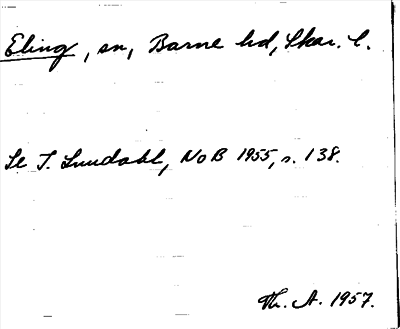 Eling, sn, Barne hd, Skar. l.
Se I. Lundahl, NoB 1955, s. 138.
Th. A. 1957.